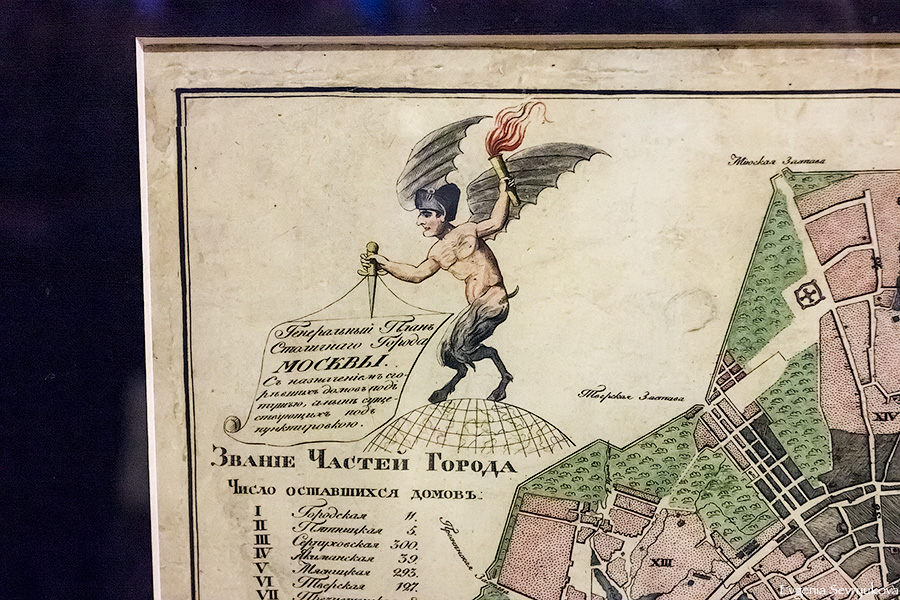 Генеральный Планъ
Столичнаго Города
МОСКВЫ.
Съ назначеніемъ сго-
рѣвшихъ домовъ подъ
тушью, а нынѣ суще-
ствующихъ подъ
пунктировкою.
Званіе Частей Города
Число оставшихся домовъ:
I Городская 11.
II Пятницкая 5.
III Серпуховская 300.
IV Якиманская 39.
V Мясницкая 293.
VI Тверская 127.
VII
Міюская Застава
Тверская Застава
XIV
XIII
Evgenia Sevryukova